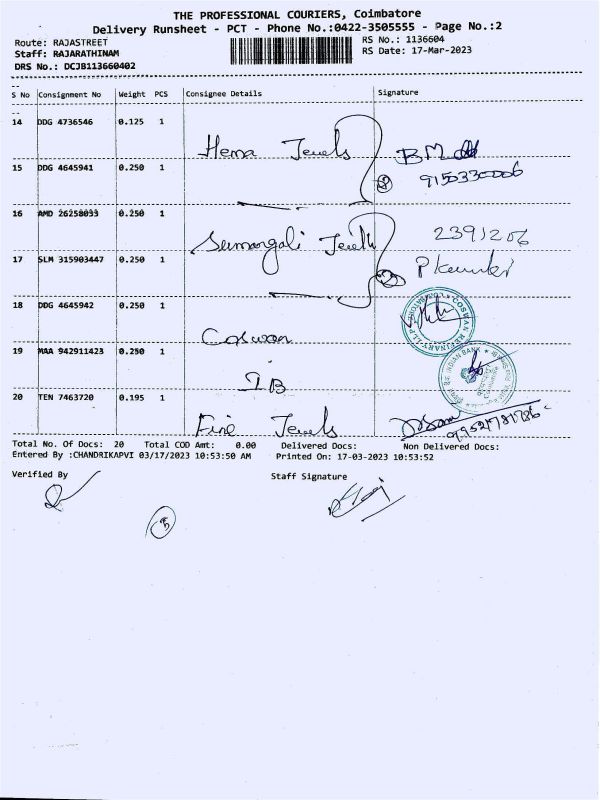 THE PROFESSIONAL COURIERS, Coimbatore
Delivery Runsheet - PCT - Phone No.:0422-3505555 - Page No.:2
Route: RAJASTREET
RS No.: 1136604
Staff: RAJARATHINAM
RS Date: 17-Mar-2023
DRS No.: DCJB113660402
S No Consignment No Weight PCS Consignee Details Signature
14 DDG 4736546 0.125 1
Hema Jewels
15 DDG 4645941 0.250 1
9150330006
16 AMD 26258033 0.250 1
Sumangali Jewels 2391206
17 SLM 315903447 0.250 1
18 DDG 4645942 0.250 1
Coswan
19 MAA 942911423 0.250 1
IB
20 TEN 7463720 0.195 1
Fine Jewels
Total No. Of Docs: 20 Total COD Amt: 0.00 Delivered Docs: Non Delivered Docs:
Entered By :CHANDRIKAPVI 03/17/2023 10:53:50 AM Printed On: 17-03-2023 10:53:52
Verified By Staff Signature